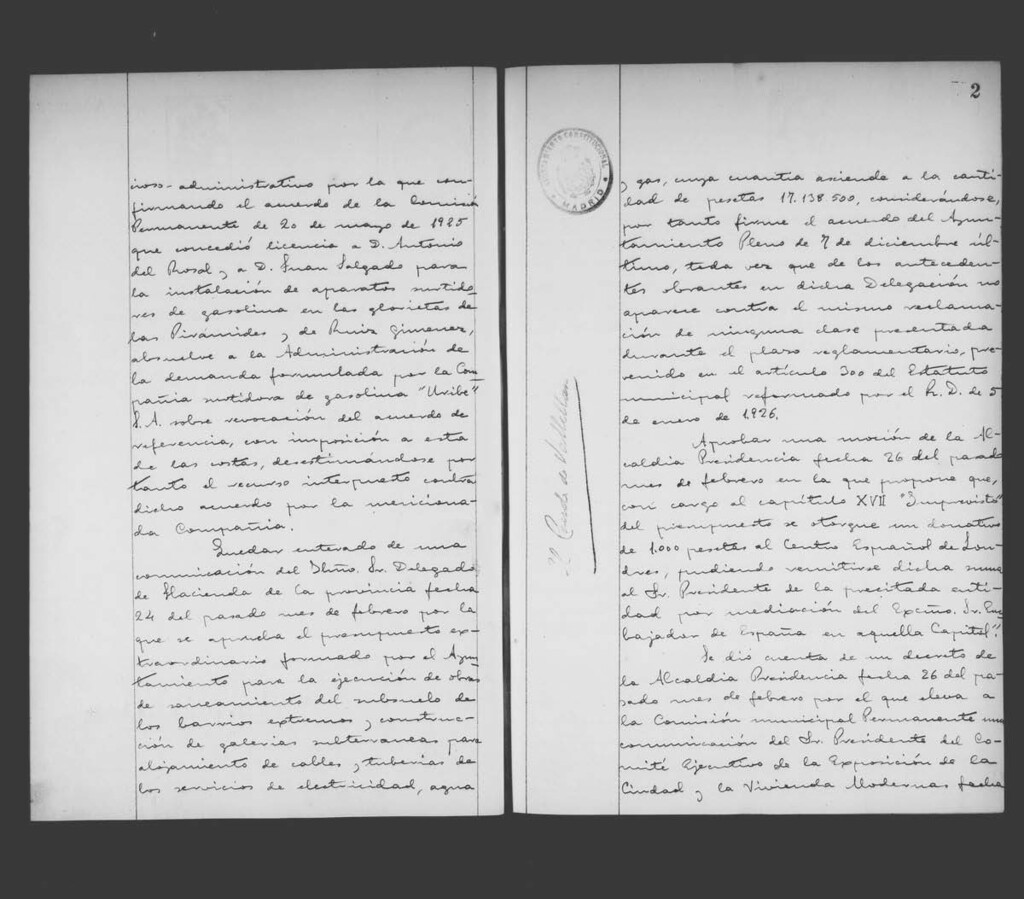 cioso-administrativo por la que con-
firmando el acuerdo de la Comisión
Permanente de 20 de mayo de 1925
que concedió licencia a D. Antonio
del Rosal y a D. Juan Salgado para
la instalación de aparatos surtido-
res de gasolina en las glorietas de
las Pirámides y de Ruiz Gimenez,
absuelve a la Administración de
la demanda formulada por la Com-
pañia surtidora de gasolina "Uribe"
S. A. sobre revocación del acuerdo de
referencia, con imposición a esta
de las costas, desestimándose por
tanto el recurso interpuesto contra
dicho acuerdo por la menciona-
da Compañia.
Quedar enterado de una
comunicación del Iltmo. Sr. Delegado
de Hacienda de la provincia fecha
24 del pasado mes de febrero por la
que se aprueba el presupuesto ex-
traordinario formado por el Ayun-
tamiento para la ejecución de obras
de saneamiento del subsuelo de
los barrios extremos y construc-
ción de galerias subterraneas para
alojamiento de cables y tuberias de
los servicios de electricidad, agua
2
AYUNTAMIENTO CONSTITUCIONAL
MADRID
y gas, cuya cuantia asciende a la canti-
dad de pesetas 17.138.500, considerándose,
por tanto firme el acuerdo del Ayun-
tamiento Pleno de 7 de diciembre úl-
timo, toda vez que de los anteceden-
tes obrantes en dicha Delegación no
aparece contra el mismo reclama-
ción de ninguna clase presentada
durante el plazo reglamentario, pre-
venido en el artículo 300 del Estatuto
municipal reformado por el R. D. de 5
de enero de 1926.
Aprobar una moción de la Al-
caldia Presidencia fecha 26 del pasado
mes de febrero en la que propone que,
con cargo al capítulo XVII "Imprevistos"
del presupuesto se otorgue un donativo
de 1.000 pesetas al Centro Español de Lon-
dres, pudiendo remitirse dicha suma
al Sr. Presidente de la precitada enti-
dad por mediación del Excmo. Sr. Em-
bajador de España en aquella Capital".
Se dió cuenta de un decreto de
la Alcaldia Presidencia fecha 26 del pa-
sado mes de febrero por el que eleva a
la Comisión municipal Permanente una
comunicación del Sr. Presidente del Co-
mité Ejecutivo de la Exposición de la
Ciudad y la Vivienda Modernas fecha
Conde de Vallellano